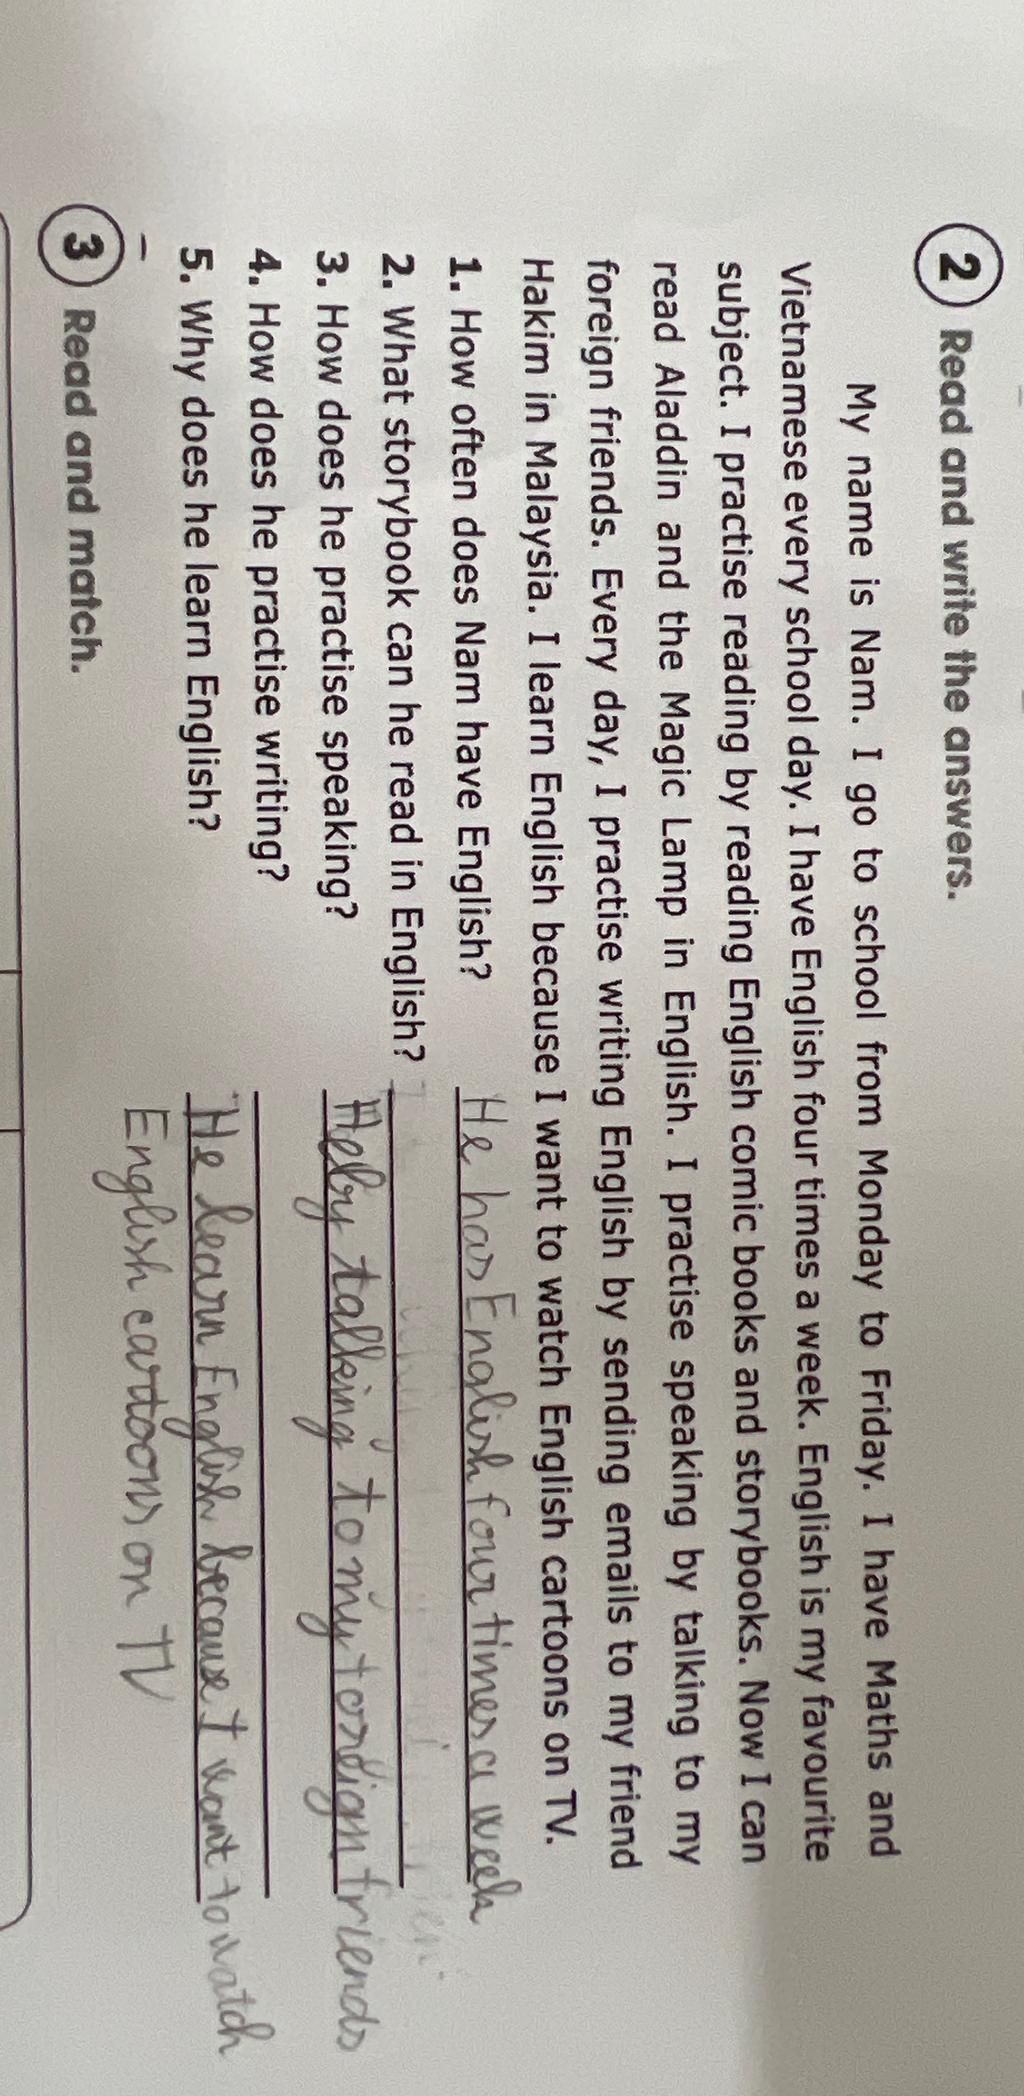 2 Read and write the answers.
My name is Nam. I go to school from Monday to Friday. I have Maths and
Vietnamese every school day. I have English four times a week. English is my favourite
subject. I practise reading by reading English comic books and storybooks. Now I can
read Aladdin and the Magic Lamp in English. I practise speaking by talking to my
foreign friends. Every day, I practise writing English by sending emails to my friend
Hakim in Malaysia. I learn English because I want to watch English cartoons on TV.
1. How often does Nam have English? He has English four times a week
2. What storybook can he read in English?
3. How does he practise speaking? He by talking to my foreign friends
4. How does he practise writing?
5. Why does he learn English? He learn English because I want to watch
English cartoons on TV
3 Read and match.